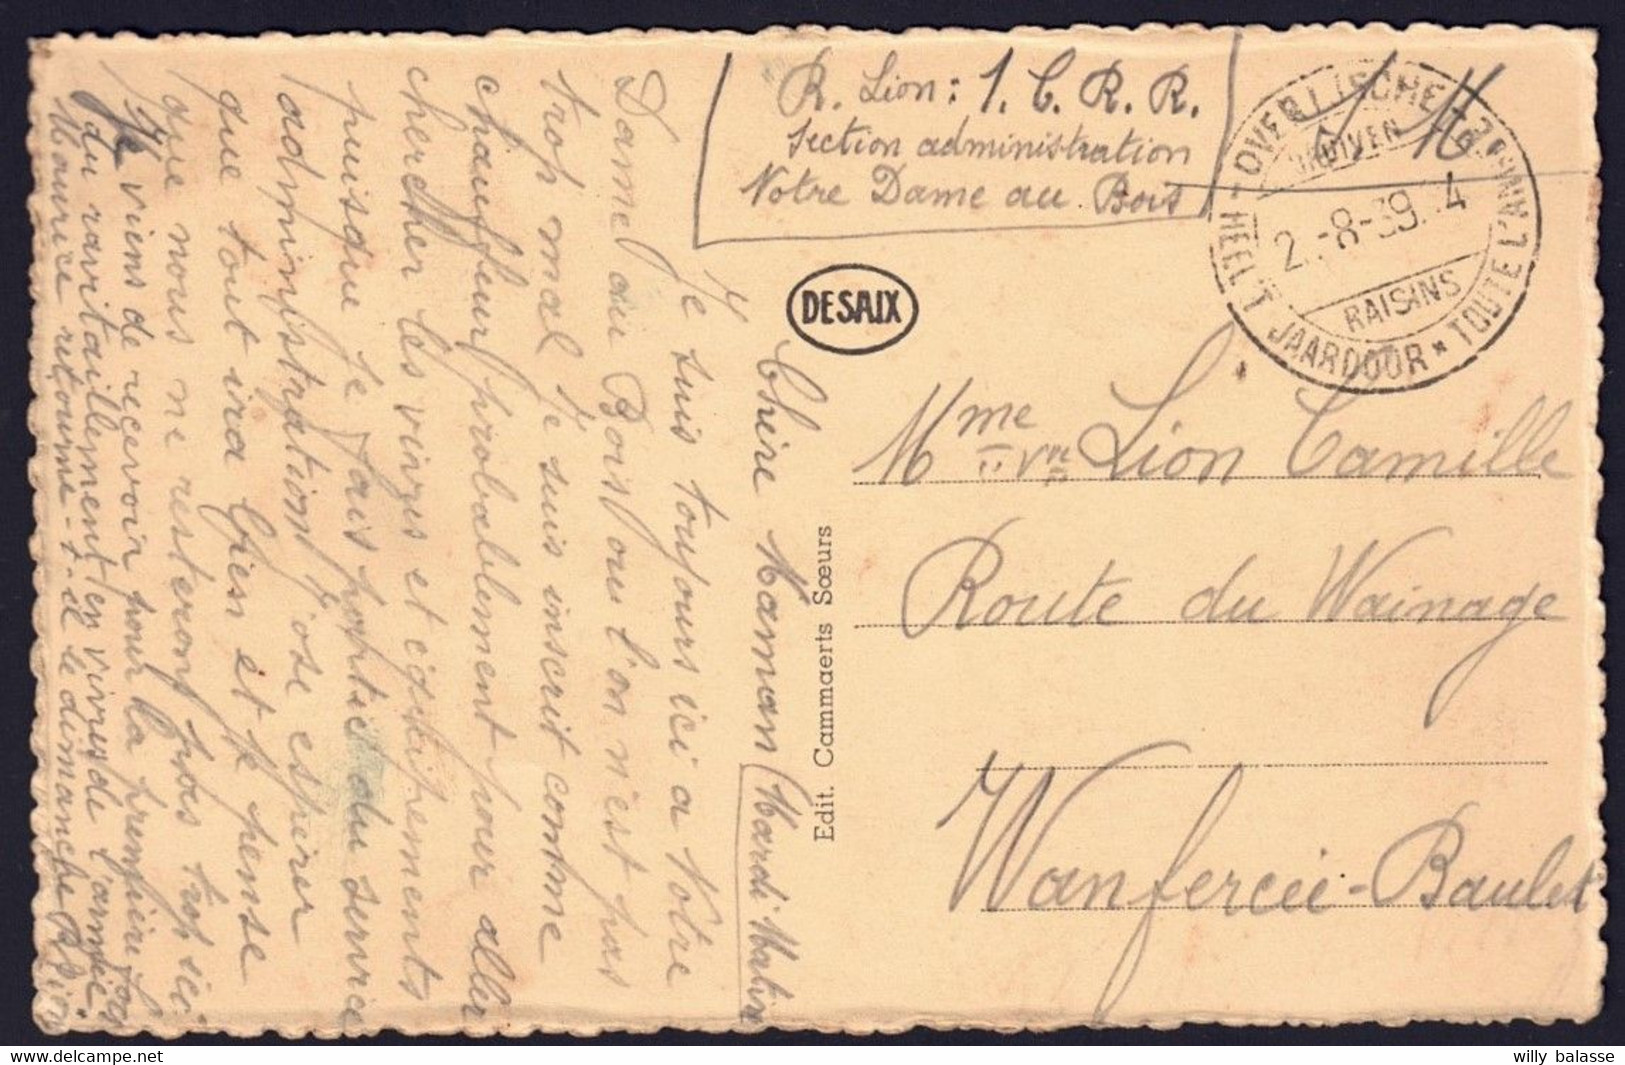 R. Lion : 1. C. R. R.
Section administration
Notre Dame au Bois
S M
OVERIJSCHE
DRUIVEN
2.-8-39. 4
RAISINS
HEEL 'T JAARDOOR * TOUTE L'ANNEE
DESAIX
Mme Vve Lion Camille
Route du Wainage
Wanfercée-Baulet
Edit. Cammaerts Sœurs
Chère Maman (Mardi Matin
Je suis toujours ici a Notre
Dame au Bois ou l'on n'est pas
trop mal Je suis inscrit comme
chauffeur probablement pour aller
chercher les vivres et équipements
puisque je fais partie du service
d'administration J'ose espérer
que tout ira bien et je pense
que nous ne resteront pas trop ici
Je viens de recevoir pour la première fois
du ravitaillement en vivres de l'armée
Maurice retourne-t-il le dimanche R Lion
willy balasse